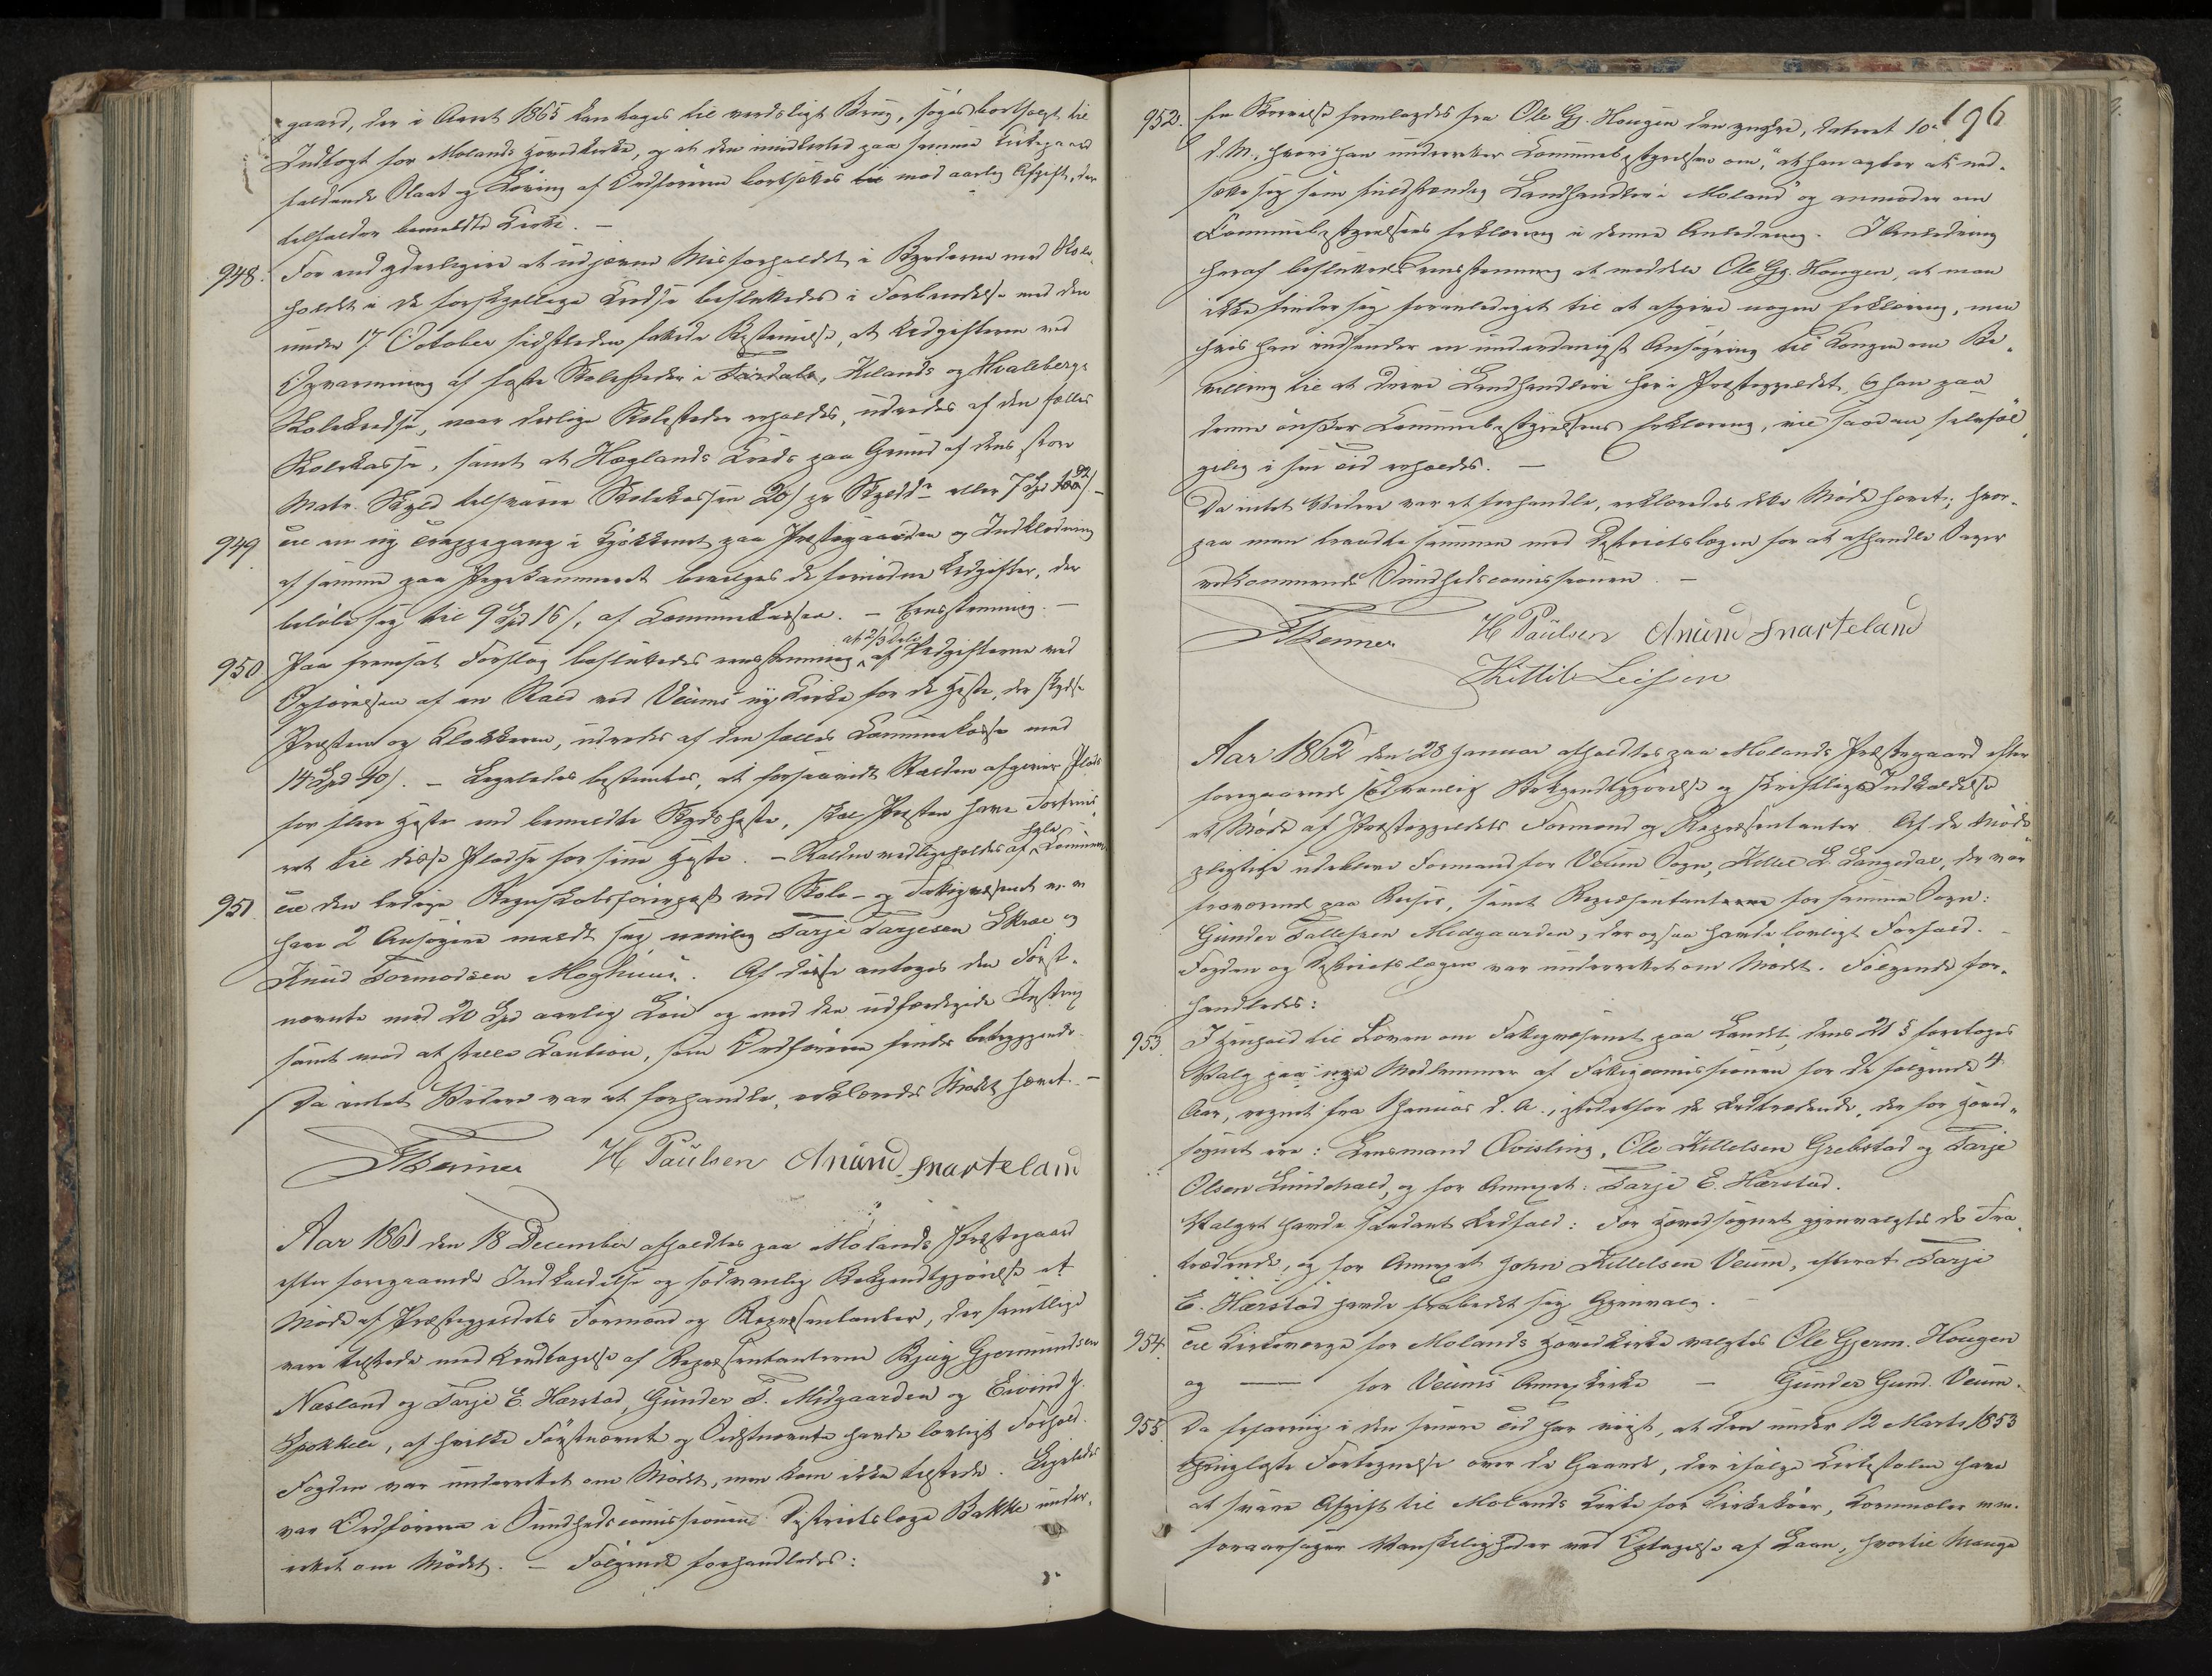 gaard, der i Aaret 1865 kan tages til verdsligt Brug, søges bortsolgt til
Indtægt for Molands Hovedkirke, og at den imidlertid paa samme Kirkegaard
faldende Slaat og Løving af Ordføreren bortsættes mod aarlig Afgift, der
tilfalder bemeldte Kirke. —
948. For end yderligere at udjævne Misforholdet i Byrderne med Skole-
holdet i de forskjellige Kredse besluttedes i Forbindelse med den
under 17 October sidstleden fattede Bestemmelse, at Udgifterne ved
Opvarmning af faste Skolesteder i Førdals, Kilands og Hvalebergs
Skolekredse, naar derlige Skolesteder erholdes, udredes af den fælles
Skolekasse, samt at Hæglands Kreds paa Grund af dens store
Matr. Skyld tilsvarer Skolekassen 20 s pr Skyldd. eller 7 Spd 92 s —
949. Til en ny Trappegang i Kjøkkenet paa Præstegaarden og Indklædning
af samme paa Pigekammeret bevilges de fornødne Udgifter, der
beløbe sig til 9 Spd 16 s, af Communekassen. — Eenstemmig. —
950. Paa fremsat Forslag besluttedes eenstemmig, at 2/3 Dele af Udgifterne ved
Opførelsen af en Stald ved Veums ny Kirke for de Heste, der skydse
Præsten og Klokkeren, udredes af den fælles Communekasse med
14 Spd 40 s. — Ligeledes bestemtes, at forsaavidt Stalden afgiver Plads
for flere Heste end bemeldte Skydsheste, skal Præsten have Fortrins-
ret til disse Pladse for sine Heste. — Stalden vedligeholdes af hele Communen
951. Til den ledige Regnskabsførerpost ved Skole- og Fattigvæsenet m. v.
have 2 Ansøgere meldt sig nemlig Tarje Tarjesen Skree og
Knud Tormodsen Moghuus. Af disse antoges den Først-
nævnte med 20 Spd aarlig Løn og med den udfærdigede Instrux
samt mod at stille Caution, som Ordføreren finder betryggende.
Da intet Videre var at forhandle, erklæredes Mødet hævet. —
H Paulsen Anund Snarteland
Aar 1861 den 18 December afholdtes paa Molands Præstegaard
efter foregaaende Indkaldelse og sædvanlig Bekjendtgjørelse et
Møde af Præstegjeldets Formænd og Repræsentanter, der samtlige
vare tilstede med Undtagelse af Repræsentanterne Bjug Gjermundsen
Næsland og Tarje E. Hærstad, Gunder T. Midgaarden og Eivind J.
Spokkeli, af hvilke Førstnævnte og Sidstnævnte havde lovligt Forfald.
Fogden var underrettet om Mødet, men kom ikke tilstede. Ligeledes
var Ordføreren i Sundhedscommissionen Districtslæge Bakke under-
rettet om Mødet. — Følgende forhandledes:
196
952. En Skrivelse fremlagdes fra Ole Gj. Haugen den yngre, dateret 10de
d. M., hvori han underretter Communebestyrelsen om, "at han agter at ned-
sætte sig som fuldstændig Landhandler i Moland" og anmoder om
Communebestyrelsens Erklæring i denne Anledning. I Anledning
heraf besluttedes eenstemmig at meddele Ole Gj. Haugen, at man
ikke finder sig foranlediget til at afgive nogen Erklæring, men
hvis han indsender en underdanigst Ansøgning til Kongen om Be-
villing til at drive Landhandleri her i Præstegjeldet, og han paa
denne ønsker Communebestyrelsens Erklæring, vil saadan selvføl-
gelig i sin Tid erholdes. —
Da intet Videre var at forhandle, erklæredes dette Møde hævet; hvor-
paa man traadte sammen med Districtslægen for at afhandle Sager
vedkommende Sundhedscommissionen. —
H Paulsen Anund Snarteland
Kittil Leifsen
Aar 1862 den 28 Januar afholdtes paa Molands Præstegaard efter
foregaaende sædvanlig Bekjendtgjørelse og skriftlig Indkaldelse
et Møde af Præstegjeldets Formænd og Repræsentanter. Af de Møde-
pligtige udeblev Formand for Veum Sogn, Kittil L. Langedal, der var
fraværende paa Reiser, samt Repræsentanten for samme Sogn:
Gunder Tallefsen Midgaarden, der ogsaa havde lovligt Forfald. —
Fogden og Districtslægen var underrettet om Mødet. Følgende for-
handledes:
953. I Henhold til Loven om Fattigvæsenet paa Landet, dens 21 § foretoges
Valg paa nye Medlemmer af Fattigcommissionen for de følgende 4
Aar, regnet fra Januar d. A., istedetfor de Udtrædende, der for Hoved-
sognet ere: Lensmand Qvisling, Ole Kittelsen Grebstad og Tarje
Olsen Lundevald, og for Annexet: Tarje E. Hærstad.
Valget havde saadant Udfald: For Hovedsognet gjenvalgtes de Fra-
trædende, og for Annexet John Kittelsen Veum, efterat Tarje
E. Hærstad havde frabedet sig Gjenvalg. —
954. Til Kirkeværge for Molands Hovedkirke valgtes Ole Gjerm. Haugen
og — for Veums Annexkirke — Gunder Gund. Veum.
955. Da Erfaring i den senere Tid har viist, at den under 12 Marts 1853
thinglæste Fortegnelse over de Gaarde, der ifølge Kirkestolen have
at svare Afgift til Molands Kirke for Kirkekøer, Kornmæler m.m.
foraarsager Vanskeligheder ved Optagelse af Laan, hvortil Mange